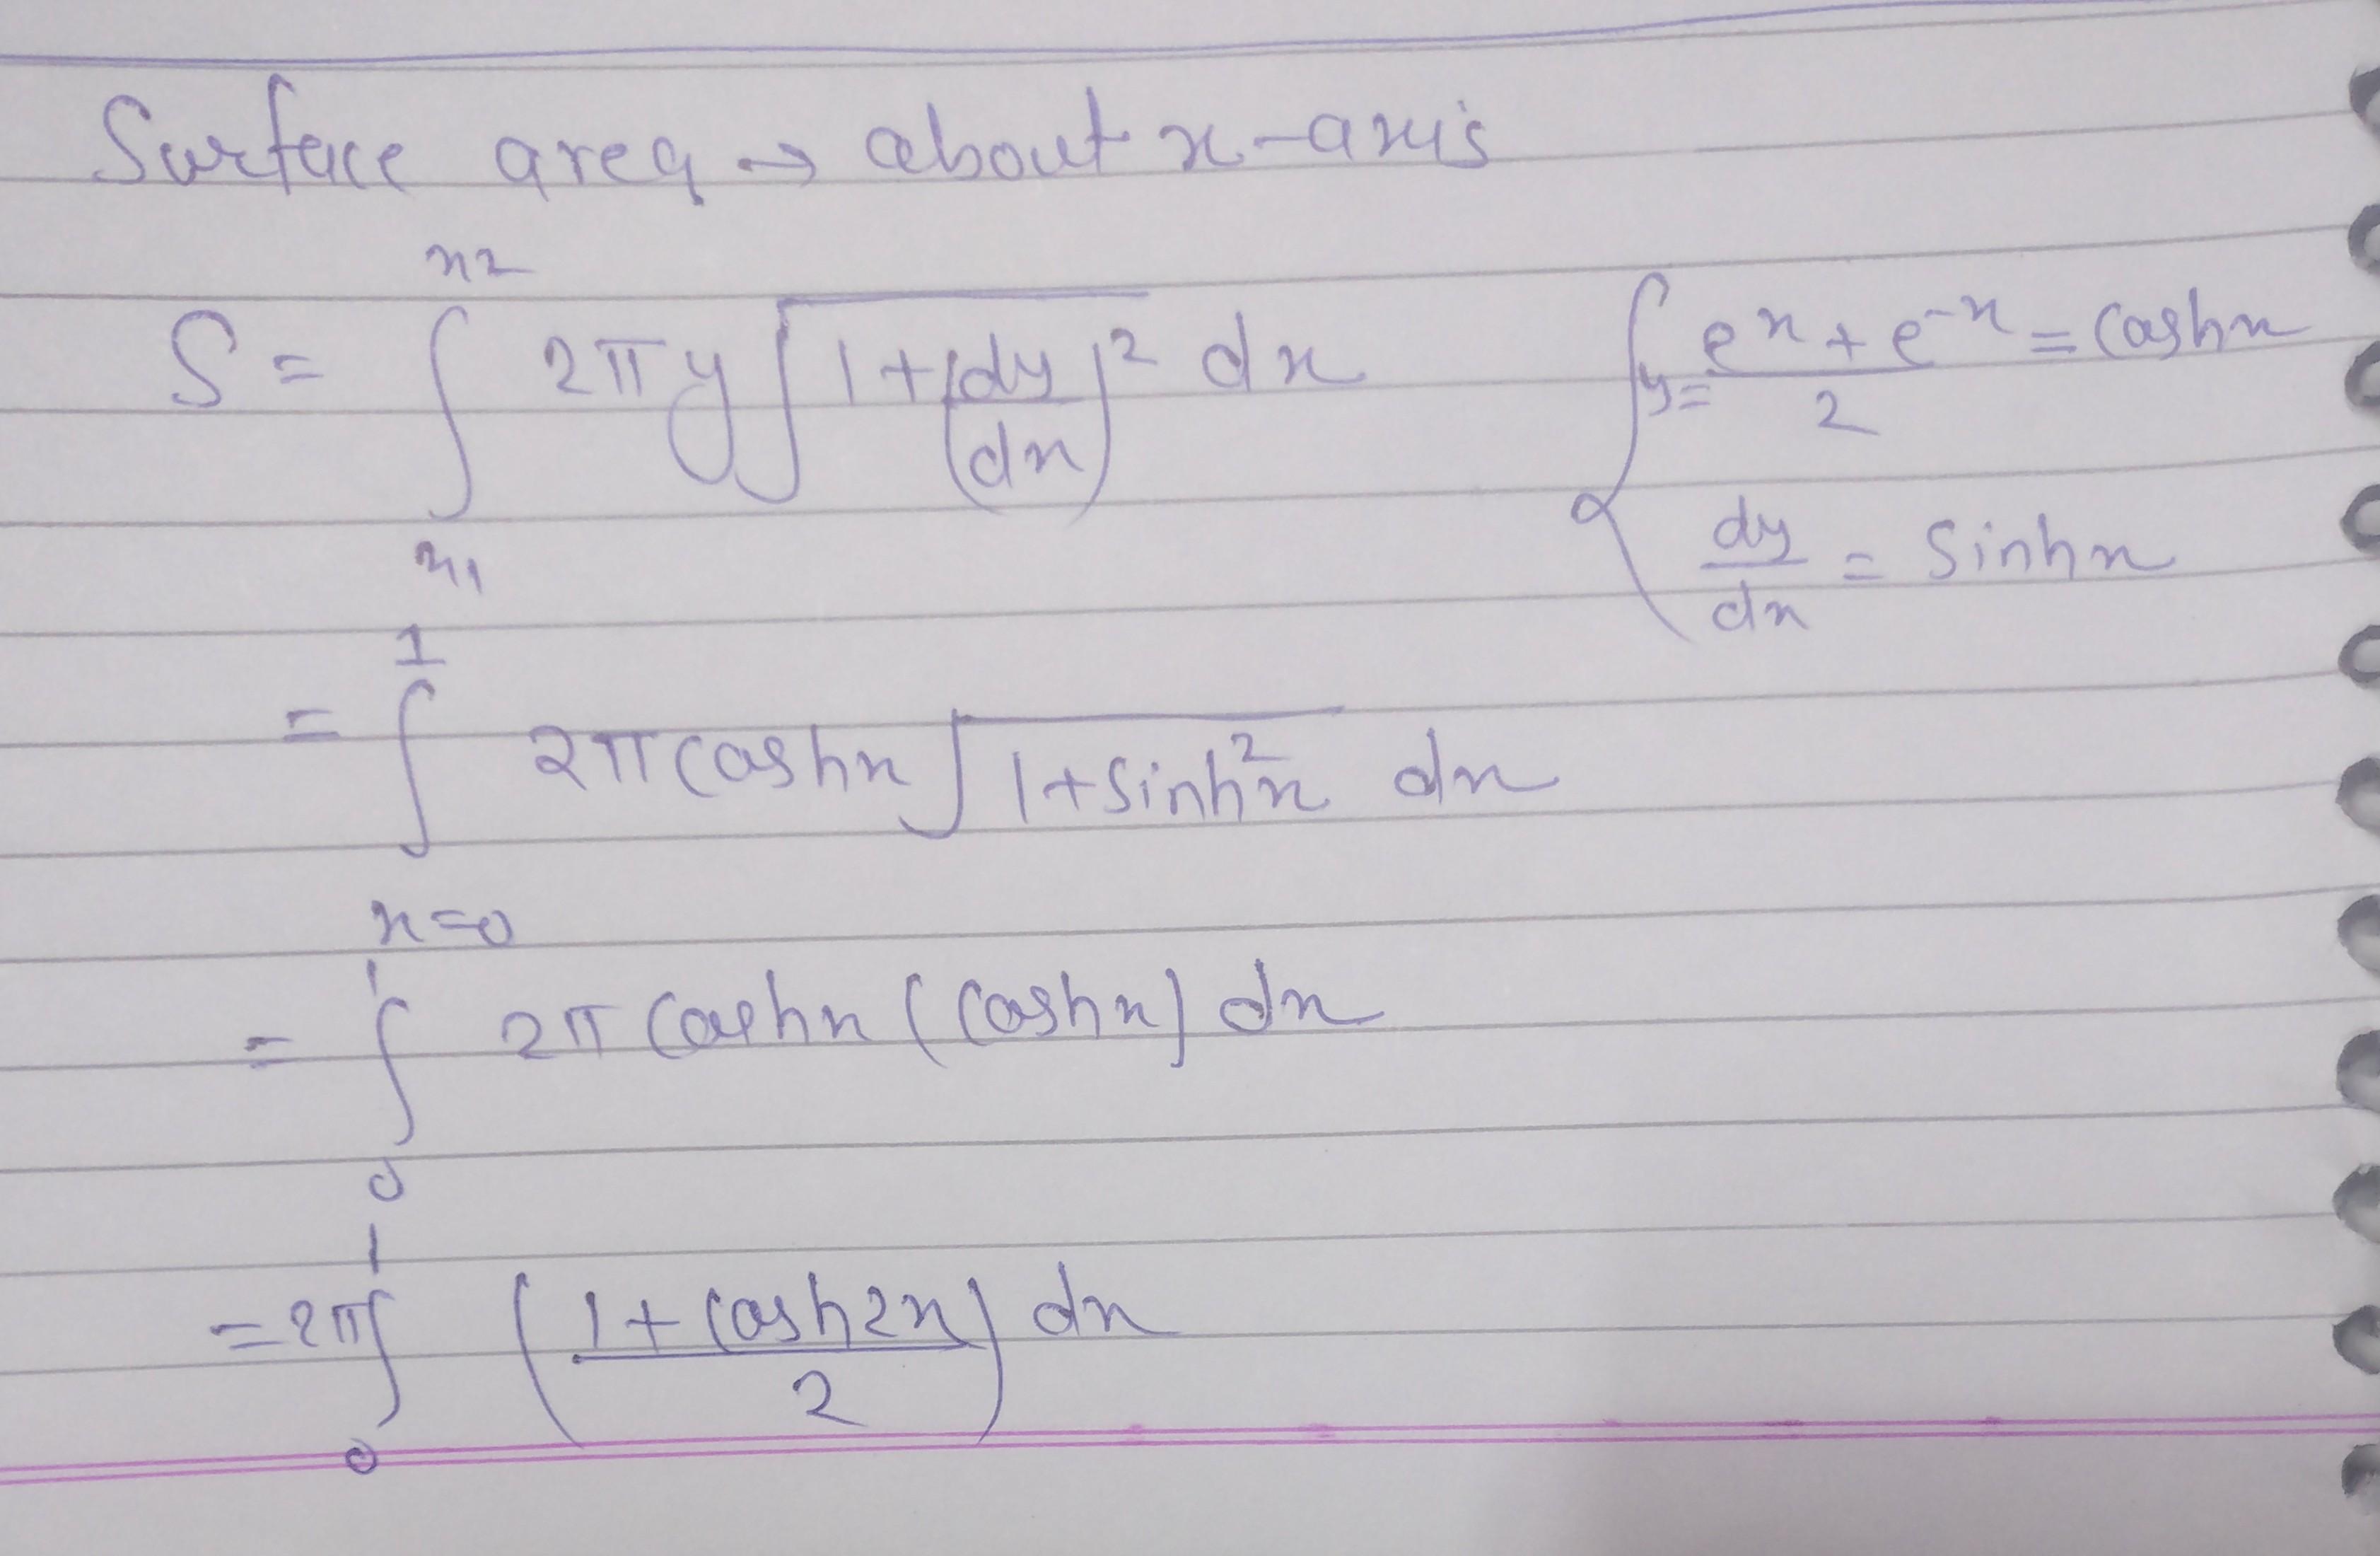 Surface area → about x-axis
x2
S = ∫ 2π y √(1 + (dy/dx)²) dx
x1
{ y = (e^x + e^-x)/2 = coshx
dy/dx = sinhx
1
= ∫ 2π coshx √(1 + sinh²x) dx
x=0
1
= ∫ 2π coshx (coshx) dx
0
1
= 2π ∫ ((1 + cosh2x)/2) dx
0